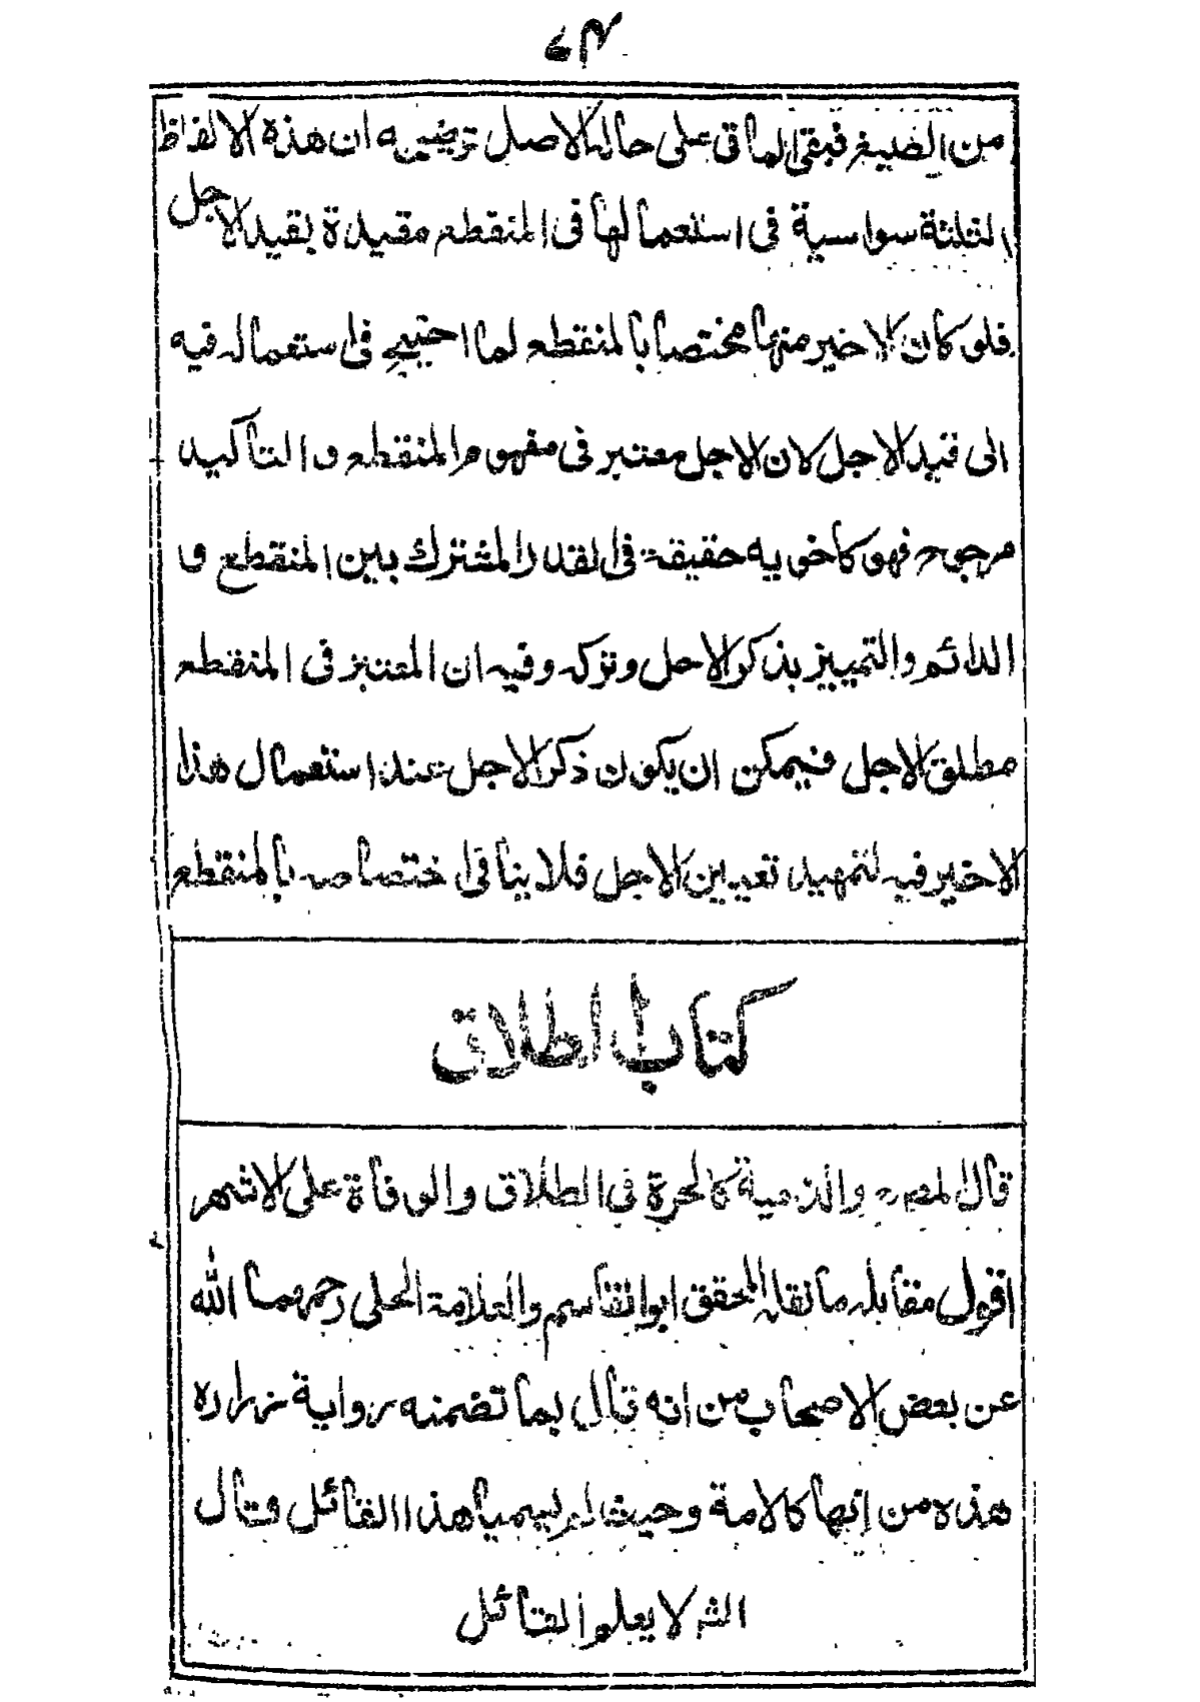 من الصيغ فبقى الباقى على حاله الاصل توضيحه ان هذه الالفاظ
الثلثة سواسية فى استعمالها فى المنقطع مقيدة بقيد الاجل
فلو كان الاخير منها مختصا بالمنقطع لما احتيج فى استعماله فيه
الى قيد الاجل لان الاجل معتبر فى مفهوم المنقطع و التاكيد
مرجوح فهو كاخويه حقيقة فى القدر المشترك بين المنقطع و
الدائم والتمييز بذكر الاجل وتركه وفيه ان المعتبر فى المنقطع
مطلق الاجل فيمكن ان يكون ذكر الاجل عند استعمال هذا
الاخير فيه لتمهيد تعيين الاجل فلا ينافى اختصاصه بالمنقطع
كتاب الطلاق
قال المصر والذمية كالحرة فى الطلاق والوفاة على الاشهر
اقول مقابله ما نقله المحقق ابوالقاسم والعلامة الحلى رحمهما الله
عن بعض الاصحاب من انه قال بما تضمنه رواية زراره
هذه من انها كالامة وحيث لم يسميا هذا القائل وقال
الشر لا يعلم القائل